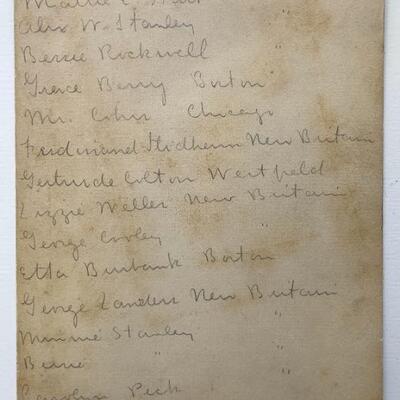 Mattie E.
Alix W. Stanley
Bessie Rockwell
Grace Berry Boston
Mr. Cohn Chicago
Ferdinand New Britain
Gertrude Colton Westfield
Lizzie Weller New Britain
George "
Etta Burbank Boston
George Landers New Britain
Minnie Stanley "
" "
Carolyn Peck